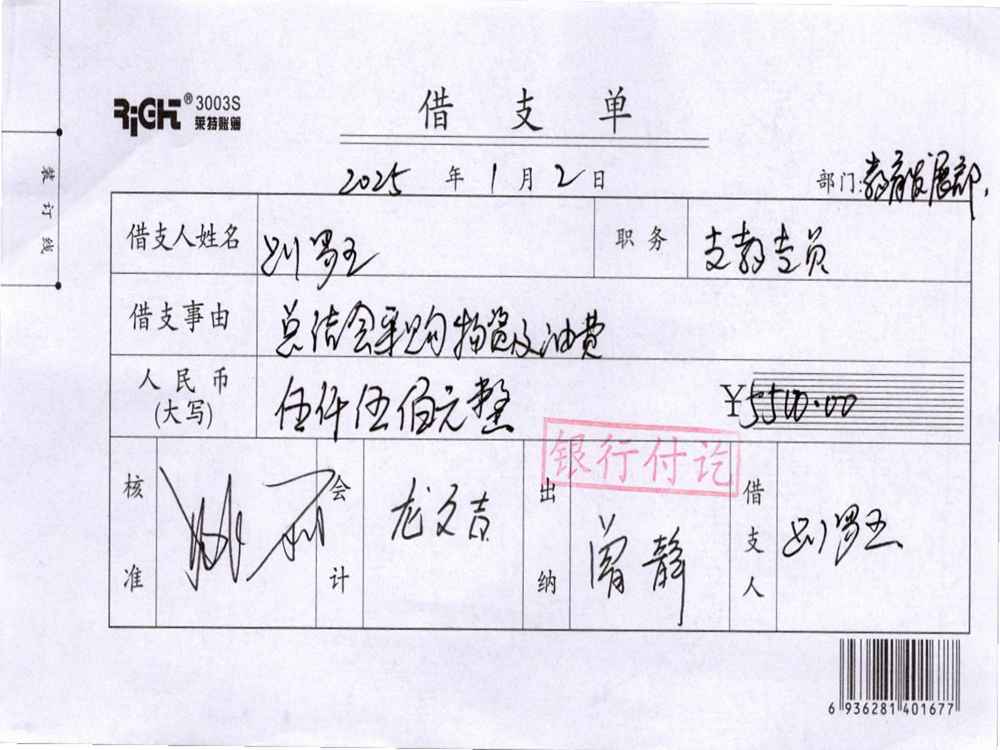 RiGHT® 3003S
莱特账簿
借支单
2025 年 1 月 2 日
部门:教育发展部.
装订线
借支人姓名 刘罗玉 职务 支教专员
借支事由 总结会采购物资及油费
人民币 伍仟伍佰元整 ¥5500.00
(大写)
银行付讫
核准 会计 龙文吉 出纳 曾静 借支人 刘罗玉
6 936281 401677